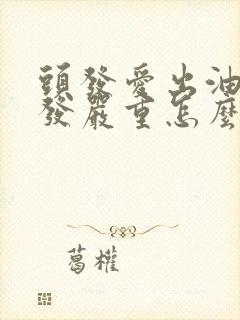 頭發愛出油
發嚴重怎麼
葛權